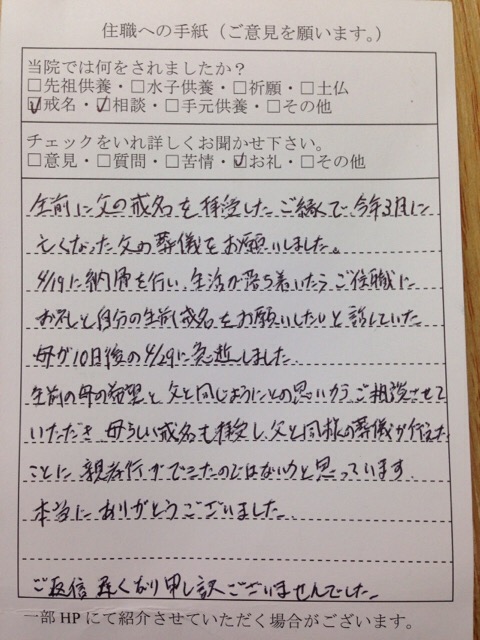 住職への手紙（ご意見を願います。）
当院では何をされましたか？
□先祖供養・□水子供養・□祈願・□土仏
☑戒名・☑相談・□手元供養・□その他
チェックをいれ詳しくお聞かせ下さい。
□意見・□質問・□苦情・☑お礼・□その他
生前に父の戒名を拝受したご縁で今年3月に
亡くなった父の葬儀をお願いしました。
4/19に納骨を行い、生活が落ち着いたらご住職に
お礼と自分の生前戒名をお願いしたいと話していた
母が10日後の4/29に急逝しました.
生前の母の希望と父と同じようにとの思いからご相談させて
いただき 母らしい戒名も拝受し、父と同様の葬儀が行えた
ことに親孝行ができたのではないかと思っています.
本当にありがとうございました
ご返信遅くなり申し訳ございませんでした.
一部HPにて紹介させていただく場合がございます。